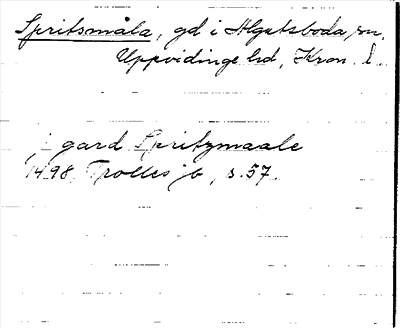 Spritsmåla, gd i Algutsboda sn,
Uppvidinge hd, Kron. l.
j gard Spritzmaale
1498 Trolles jb, s. 57.